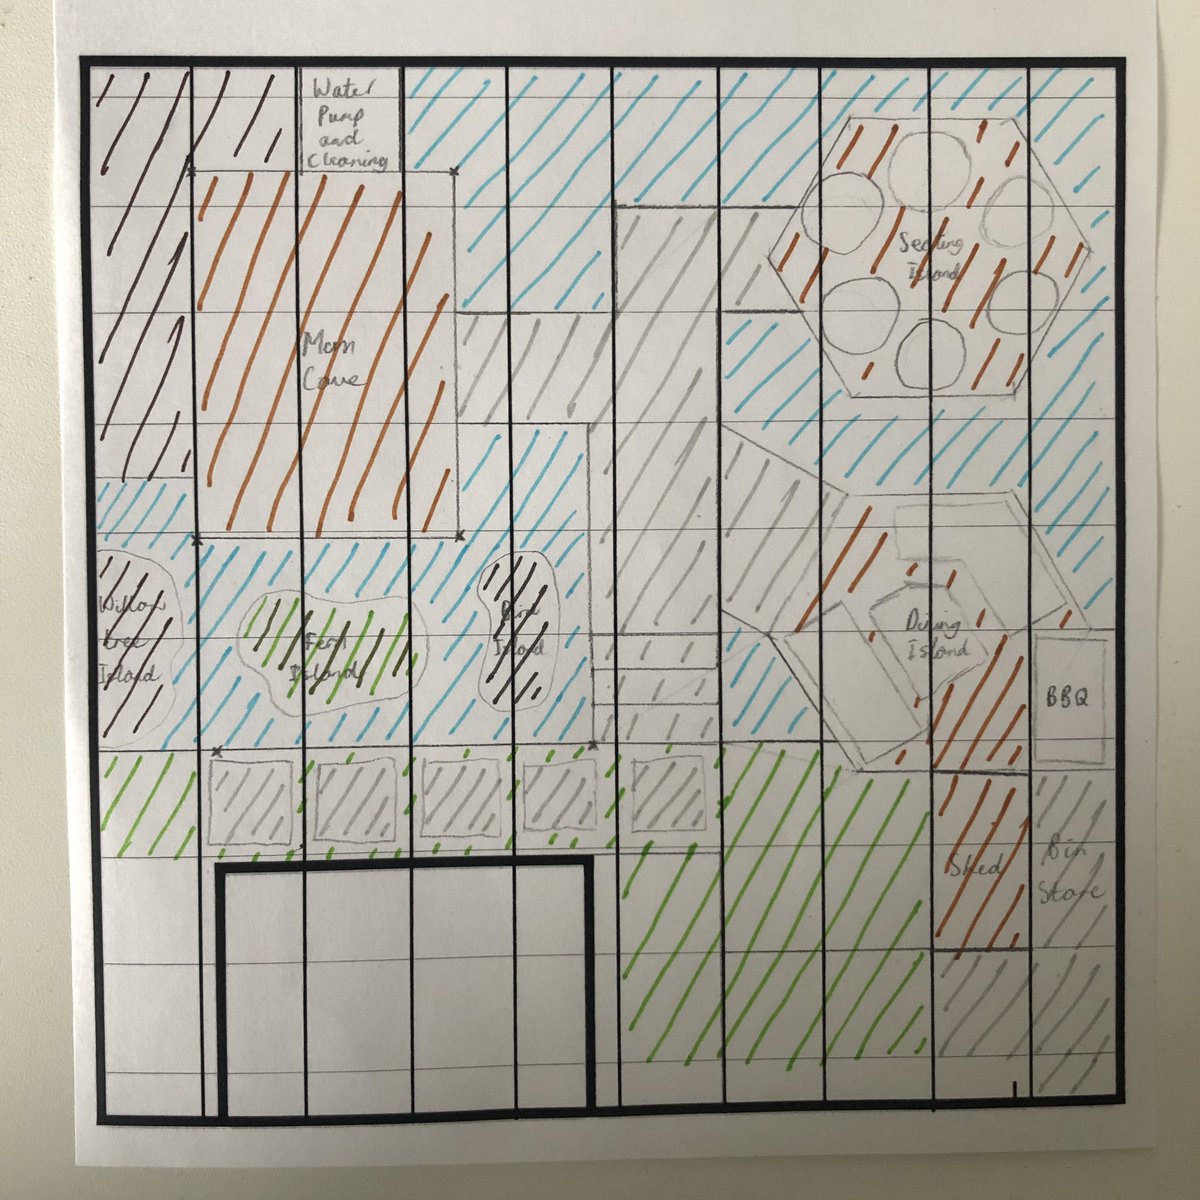 Water
Pump
and
Cleaning
Seating
Island
Mom
Cave
Willow
tree
Island
Fern
Island
Bird
Island
Dining
Island
BBQ
Shed
Bin
Store